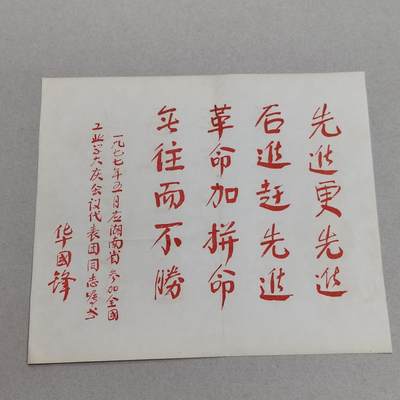 先進更先進
后進赶先進
革命加拼命
无往而不勝
一九七七年五月应湖南省参加全國
工业学大庆会议代表团同志嘱书
华國锋